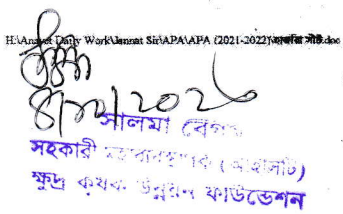 H:\Anayet Daily Work\Jannat Sir\APA\APA (2021-2022)\হাজিরা সীট.doc
সালমা বেগম
সহকারী মহাব্যবস্থাপক (আইসিটি)
ক্ষুদ্র কৃষক উন্নয়ন ফাউন্ডেশন